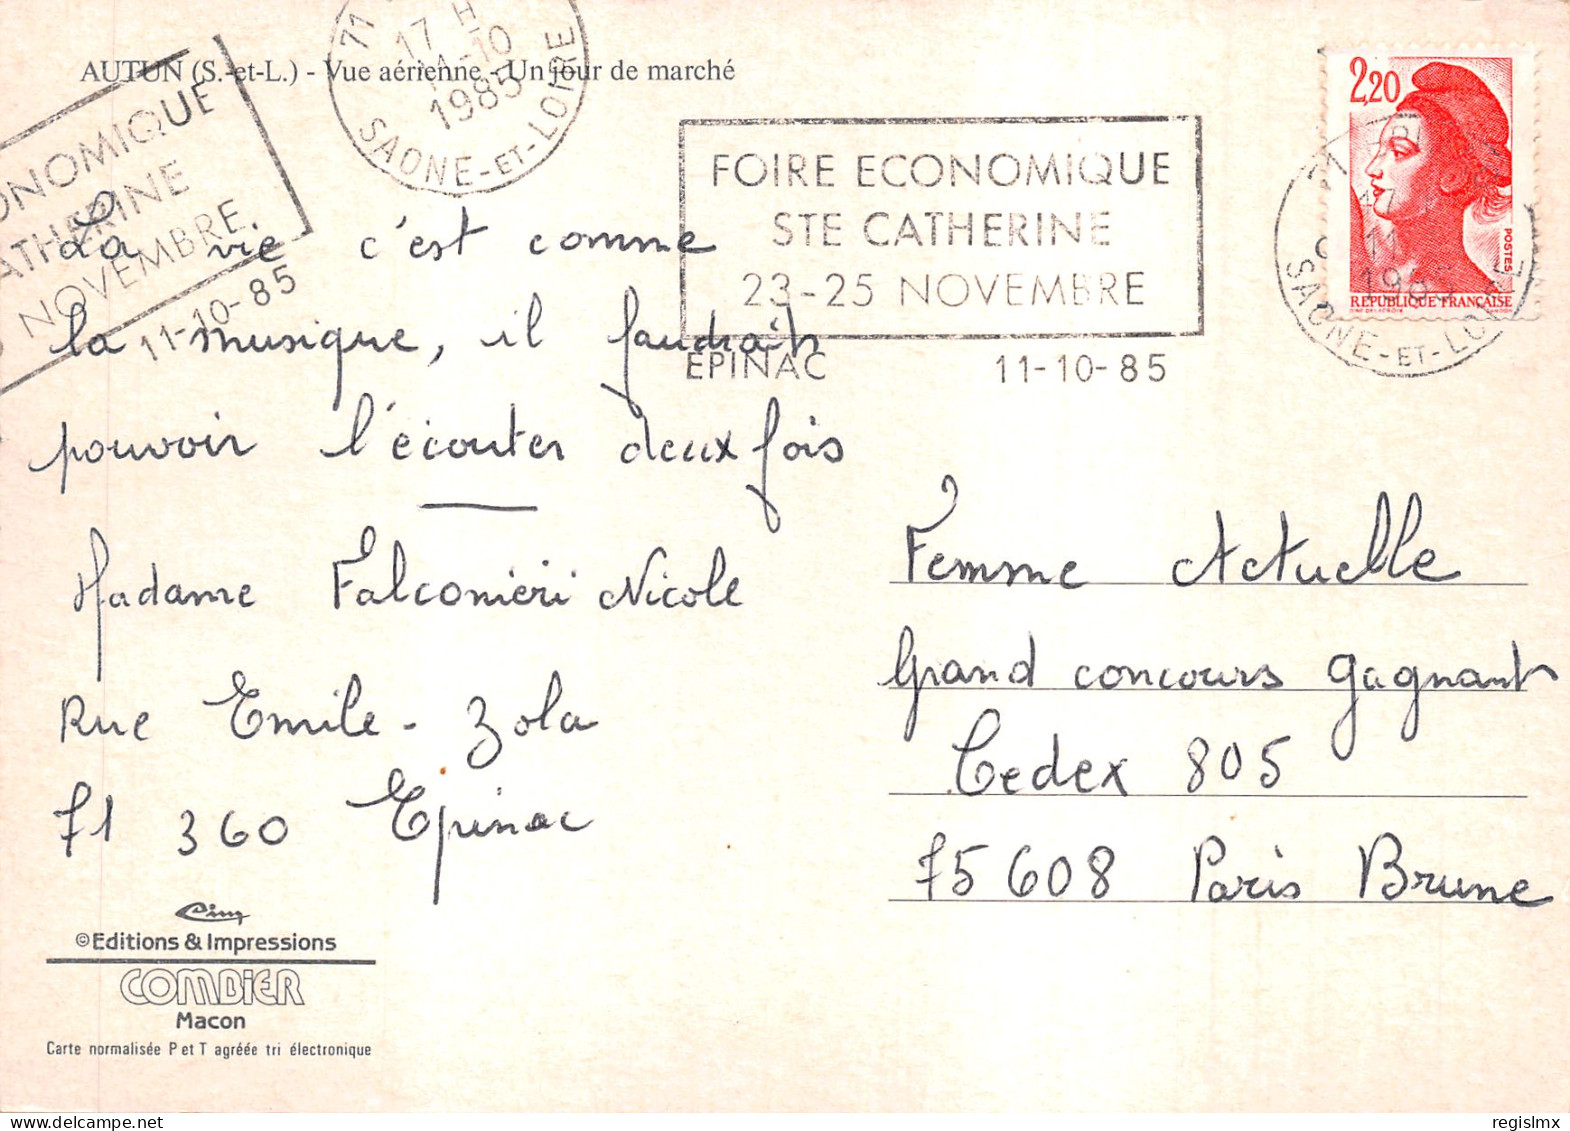 AUTUN (S.-et-L.) - Vue aérienne - Un jour de marché
71
17 H
11-10
1985
SAONE-ET-LOIRE
ONOMIQUE
ATHERINE
NOVEMBRE
11-10-85
FOIRE ECONOMIQUE
STE CATHERINE
23-25 NOVEMBRE
EPINAC 11-10-85
2,20
POSTES
REPUBLIQUE FRANÇAISE
71
17
11
SAONE-ET-LOIRE
La vie c'est comme
la musique, il faudrait
pouvoir l'écouter deux fois
Madame Falconieri Nicole
Rue Emile - Zola
71 360 Epinac
Femme Actuelle
Grand concours gagnant
Cedex 805
75608 Paris Brune
Cim
©Editions & Impressions
COMBIER
Macon
Carte normalisée P et T agréée tri électronique
regislmx